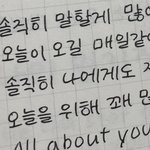 솔직히 말할게 많이
오늘이 오길 매일같이
솔직히 나에게도 지
오늘을 위해 꽤 많
All about you